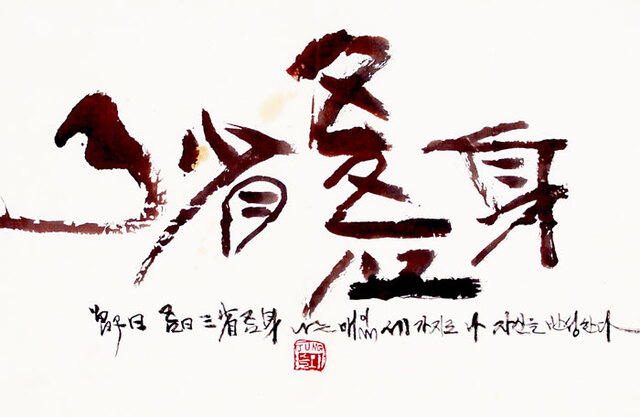 3省吾身
曾子曰 吾日三省吾身 나는 매일 세가지로 나 자신을 반성한다
JUNG